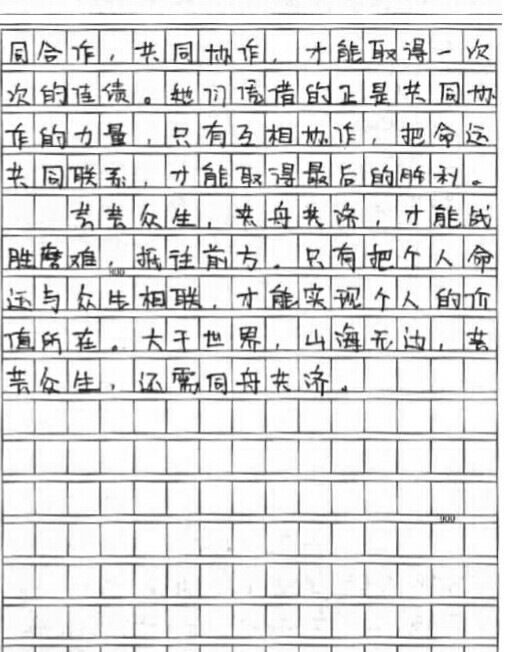 同合作，共同协作，才能取得一次
次的佳绩。她们凭借的正是共同协
作的力量，只有互相协作，把命运
共同联系，才能取得最后的胜利。
芸芸众生，共舟共济，才能战
胜磨难，抵往前方。只有把个人命
800
运与众生相联，才能实现个人的价
值所在。大千世界，山海无边，芸
芸众生，还需同舟共济。
900